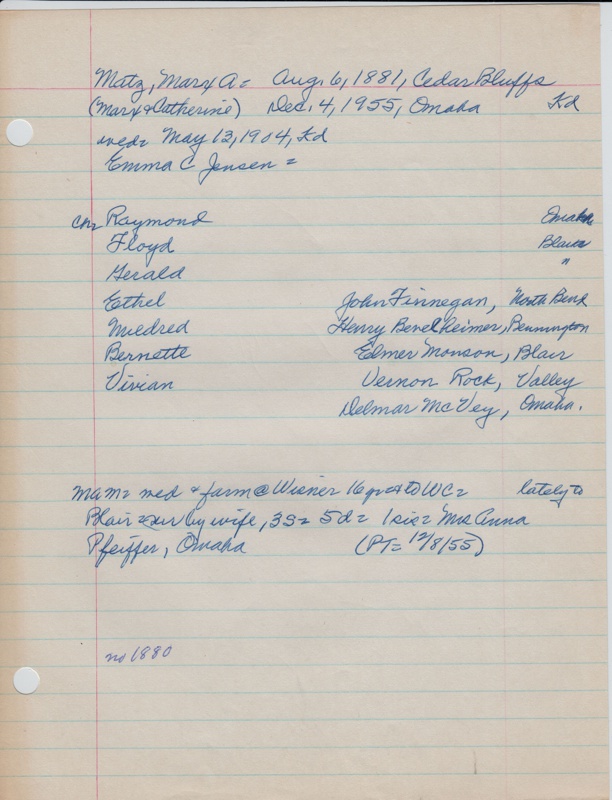 Matz, Marx A = Aug. 6, 1881, Cedar Bluffs
(Marx & Catherine) Dec. 4, 1955, Omaha Kd
wed = May 12, 1904, Kd
Emma C Jensen =
chn Raymond Omaha
Floyd Blair
Gerald "
Ethel John Finnegan, North Bend
Mildred Henry Bendheimer, Bennington
Bernette Elmer Monson, Blair
Vivian Vernon Rock, Valley
Delmar McVey, Omaha.
M & M = med & farm @ Wisner 16 yr & to WC = lately to
Blair = sur by wife, 3 S = 5 d = 1 sis = Mrs Anna
Pfeiffer, Omaha (PT = 12/8/55)
no 1880